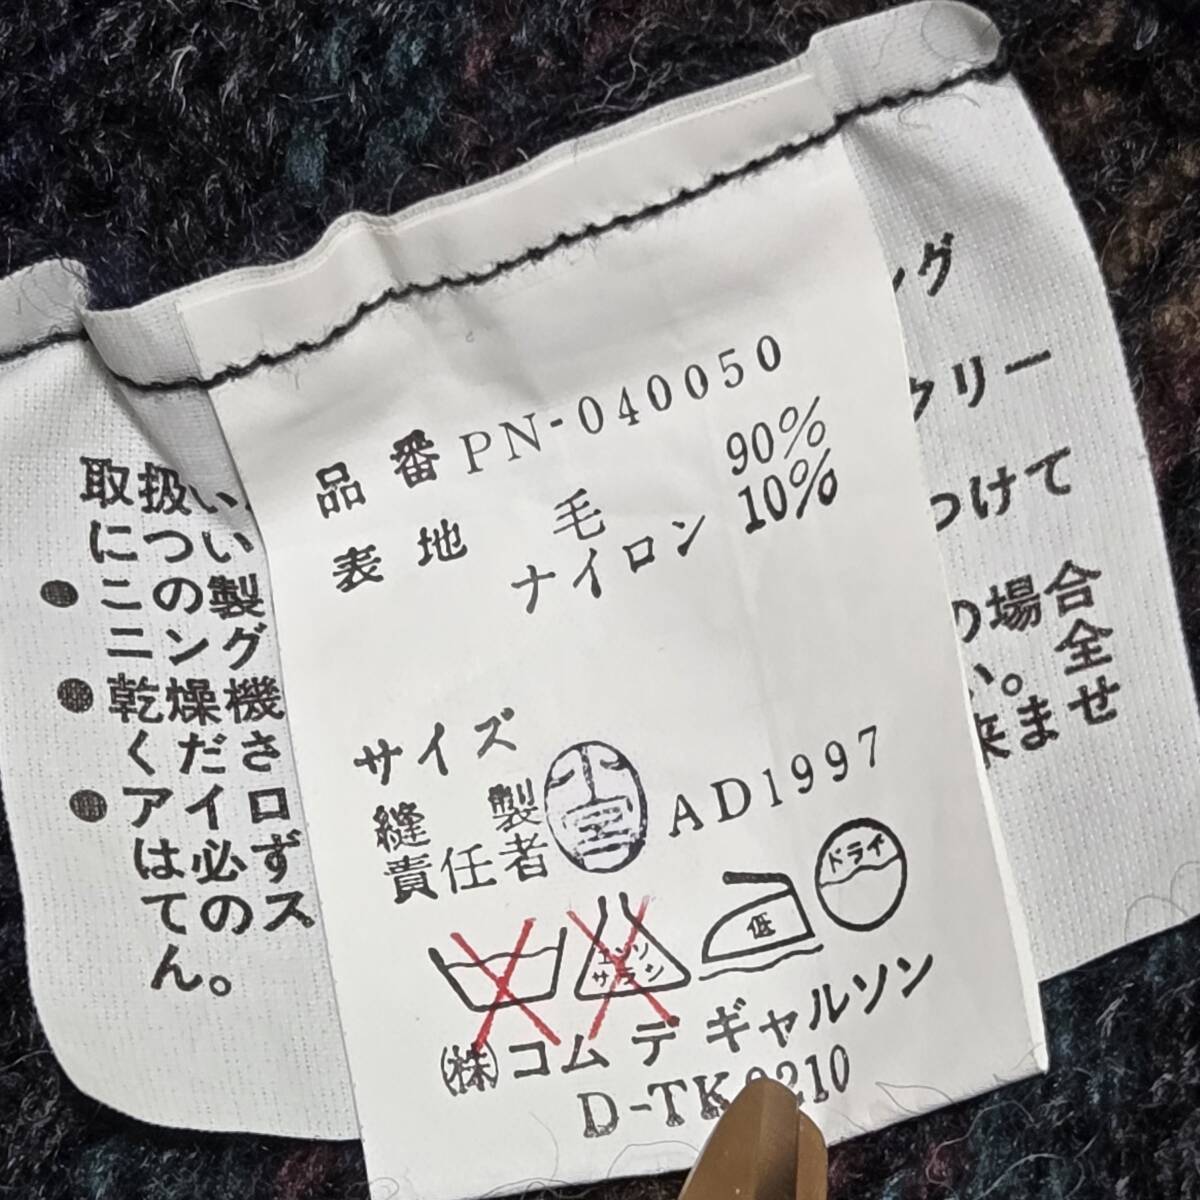 品番 PN-040050
表地 毛 90%
ナイロン 10%
サイズ
縫製
責任者 小宮 AD1997
エンソ
サラシ
低
ドライ
(株)コム デ ギャルソン
D-TK0210
取扱い
につい
●この製
ニング
●乾燥機
くださ
●アイロ
は必ず
てのス
ん。
ング
クリー
つけて
の場合
い。全
来ませ